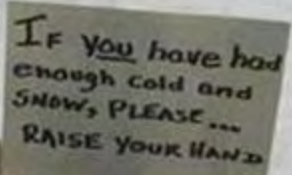 IF you have had
enough cold and
SNOW, PLEASE...
RAISE YOUR HAND